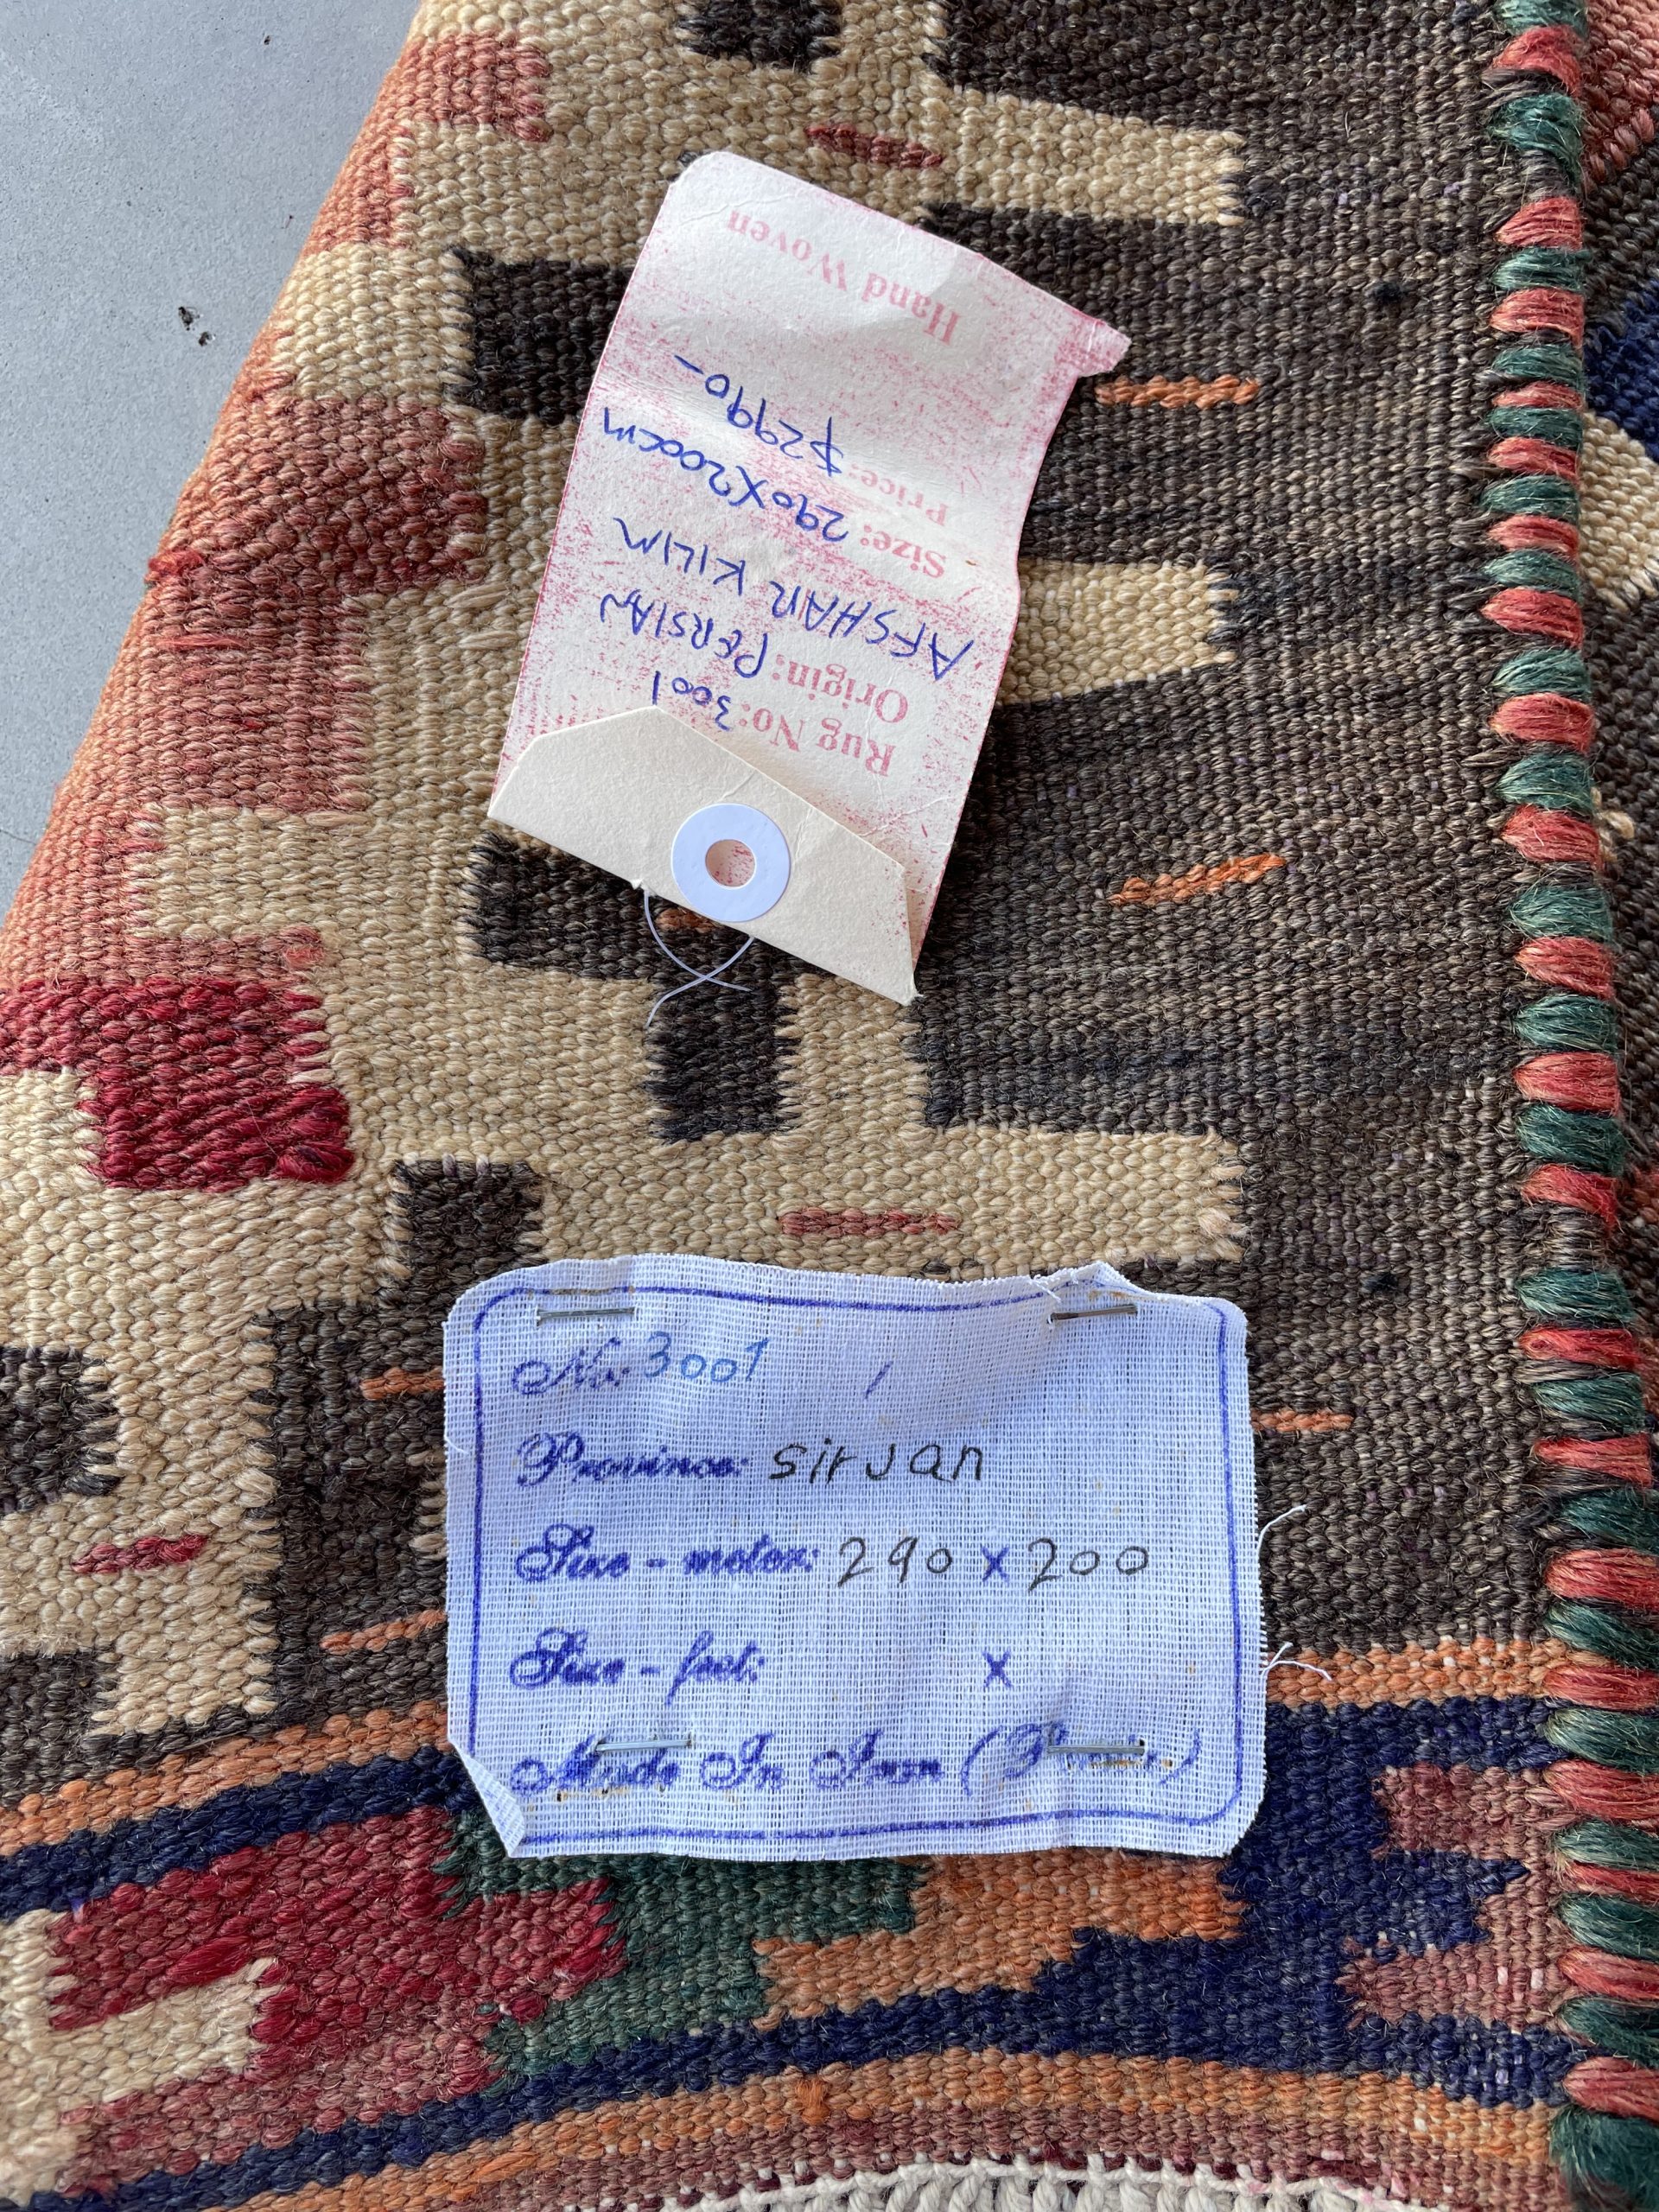 Hand Woven
Rug No: 3001
Origin: PERSIAN
AFSHAR KILIM
Size: 290X200cm
Price: $2990-
No. 3001
Province: sirjan
Size - meter: 290 x 200
Size - feet: x
Made In Iran (